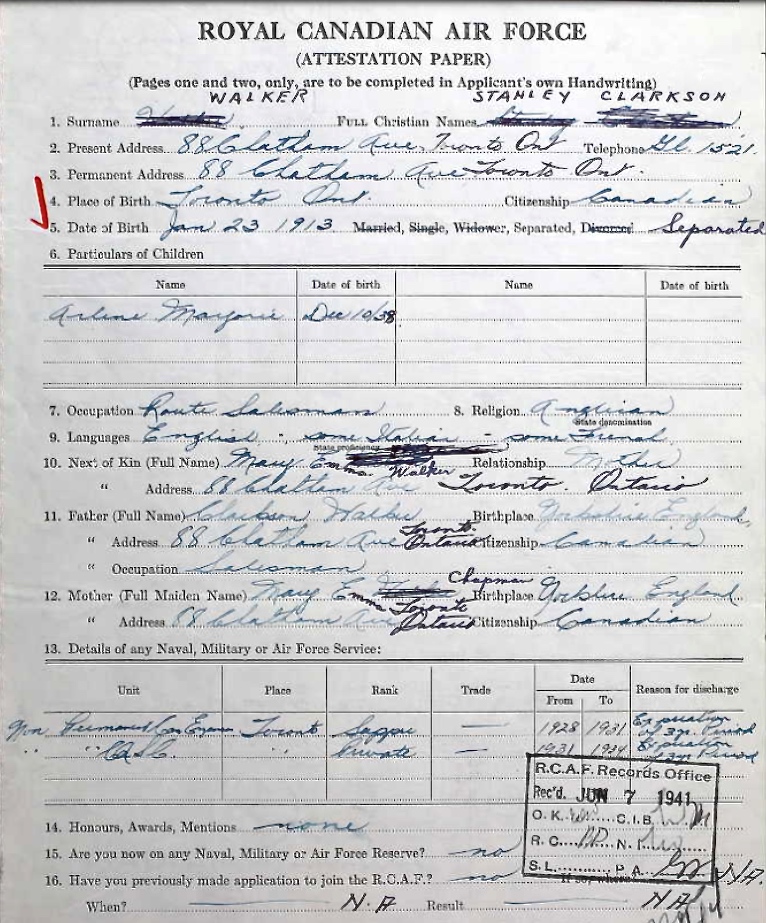 ROYAL CANADIAN AIR FORCE
(ATTESTATION PAPER)
(Pages one and two, only, are to be completed in Applicant's own Handwriting)
WALKER STANLEY CLARKSON
1. Surname Full Christian Names
2. Present Address 88 Chatham Ave Toronto Ont Telephone Gl. 1521
3. Permanent Address 88 Chatham Ave Toronto Ont.
4. Place of Birth Toronto Ont. Citizenship Canadian
5. Date of Birth Jan 23 1913 Married, Single, Widower, Separated, Divorced Separated
6. Particulars of Children
Name Date of birth Name Date of birth
Arlene Marjorie Dec 10/38
7. Occupation Route Salesman 8. Religion Anglican
State denomination
9. Languages English - some Italian - some French
State proficiency
10. Next of Kin (Full Name) Mary Emma Walker Relationship Mother
" Address 88 Chatham Ave Toronto. Ontario
11. Father (Full Name) Clarkson Walker Birthplace Yorkshire England
" Address 88 Chatham Ave Toronto Ontario Citizenship Canadian
" Occupation Salesman
12. Mother (Full Maiden Name) Mary Emma Chapman Birthplace Yorkshire England
" Address 88 Chatham Ave Toronto Ontario Citizenship Canadian
13. Details of any Naval, Military or Air Force Service:
Unit Place Rank Trade Date Reason for discharge
From To
Toronto Sapper — 1928 1931 Expiration of 3 yr. Period
" " C.A.S.C. " Private — 1931 1934 Expiration of 3 yr. Period
R.C.A.F. Records Office
Rec'd. JUN 7 1941
O.K. C.I.B.
R.C. N.I.
S.L. P.A.
14. Honours, Awards, Mentions none
15. Are you now on any Naval, Military or Air Force Reserve? no
16. Have you previously made application to join the R.C.A.F.? no If so, where N/A.
When? N.A Result N/A